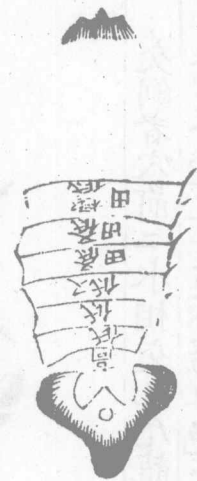 高
低
低
又低
田底
田底
田極低